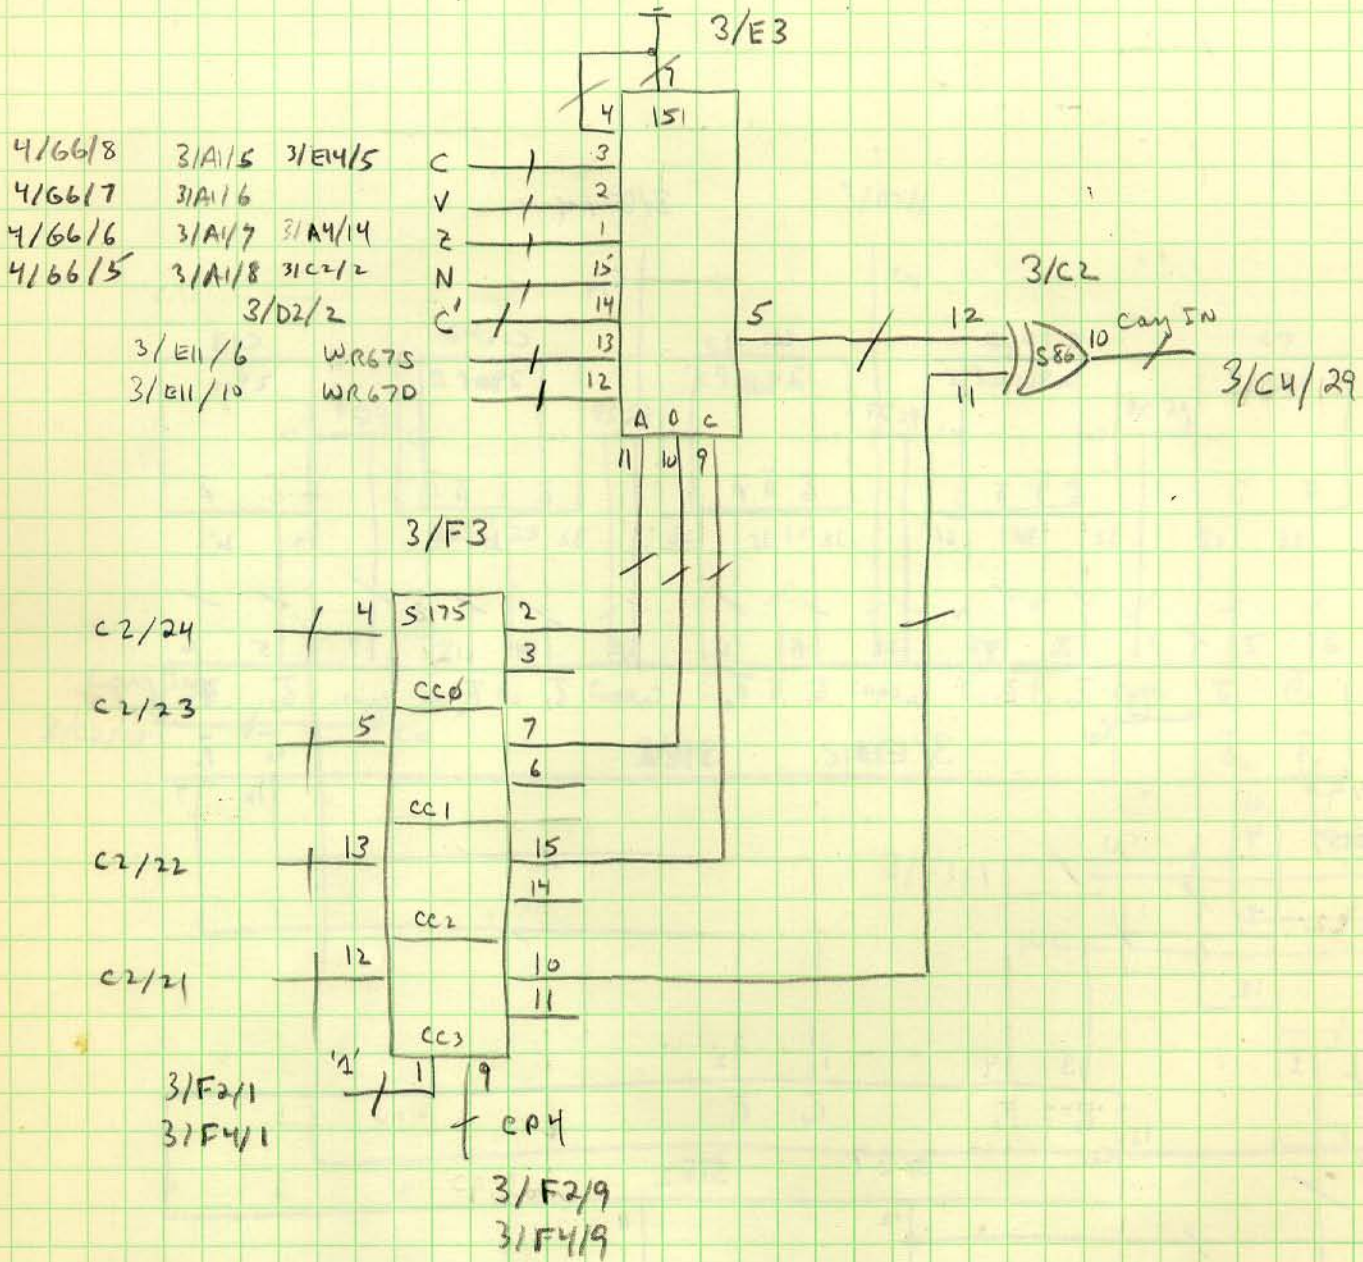 3/E3
7
4 151
4/G6/8 3/A1/5 3/E14/5 C 3
4/G6/7 3/A1/6 V 2
4/G6/6 3/A1/7 3/A4/14 Z 1
4/G6/5 3/A1/8 3/C2/2 N 15
3/D2/2 C' 14
3/E11/6 WR67S 13
3/E11/10 WR67D 12
A B C
11 10 9
5
3/C2
12
11
S86
10 Carry IN
3/C4/29
3/F3
C2/24 4 S175 2
3
CCØ
C2/23 5 7
6
CC1
C2/22 13 15
14
CC2
C2/21 12 10
11
CC3
'1' 1 9
3/F2/1
3/F4/1
CP4
3/F2/9
3/F4/9